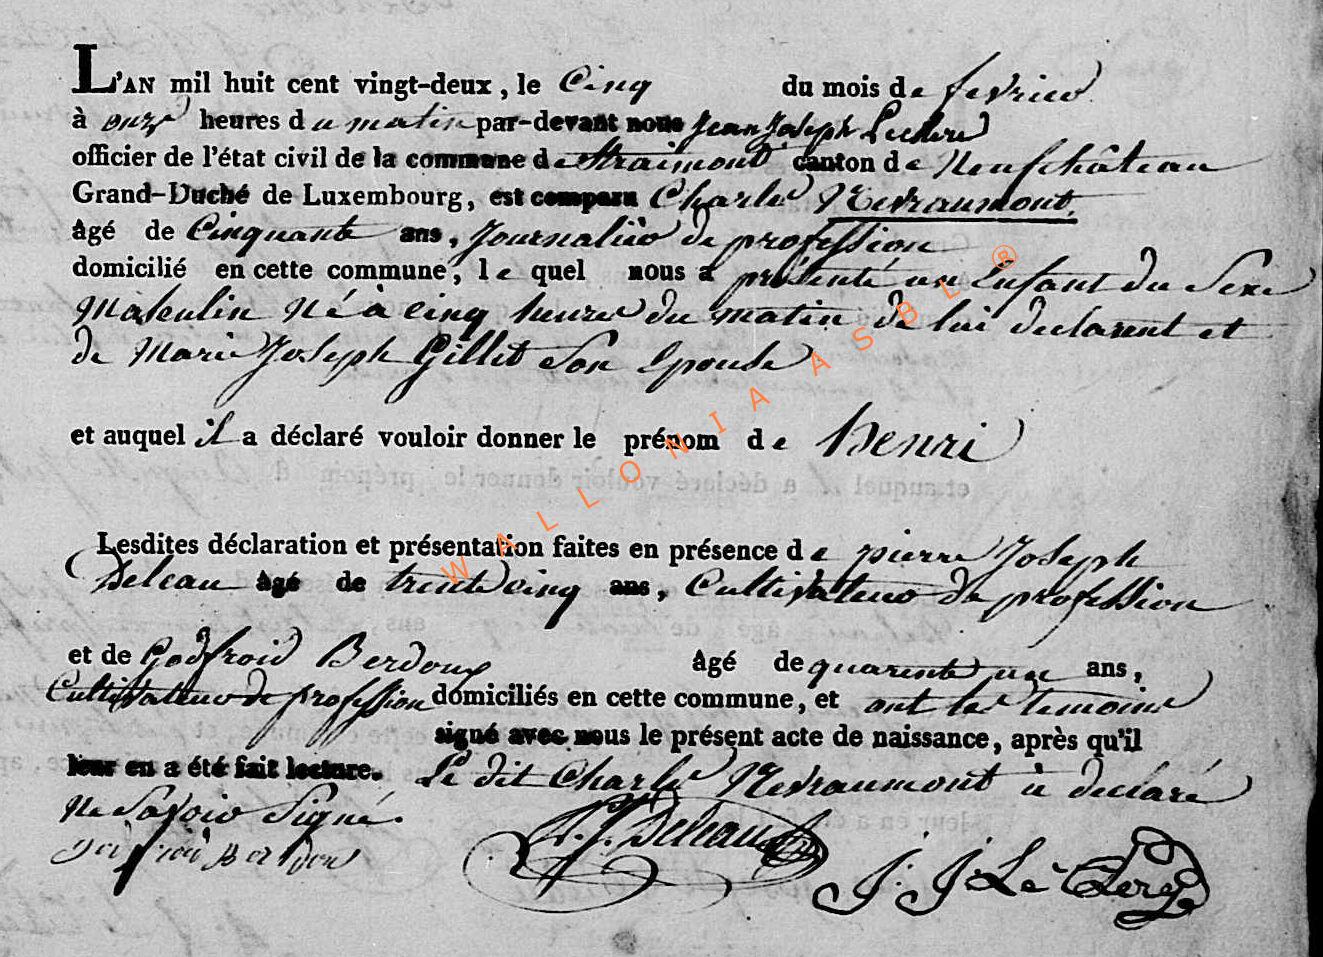 L'AN mil huit cent vingt-deux, le Cinq du mois de fevrier
à onze heures du matin par-devant nous Jean Joseph Leclere
officier de l'état civil de la commune de Straimont canton de Neufchâteau
Grand-Duché de Luxembourg, est comparu Charles Nevraumont,
âgé de Cinquante ans, Journalier de profession
domicilié en cette commune, lequel nous a présenté un Enfant du Sexe
Masculin Né à cinq heures du matin de lui declarent et
de Marie Joseph Gillet Son Epouse
et auquel il a déclaré vouloir donner le prénom de henri
Lesdites déclaration et présentation faites en présence de pierre Joseph
Deleau âgé de trente cinq ans, Cultivateur de profession
et de Godfroid Berdoux âgé de quarente une ans,
Cultivateur de profession domiciliés en cette commune, et ont les temoins
signé avec nous le présent acte de naissance, après qu'il
leur en a été fait lecture. Le dit Charles Nevraumont à declaré
Ne Savoir Signé.
P. J. Deleau
J. J. Le Clere
W A L L O N I A A S B L ®